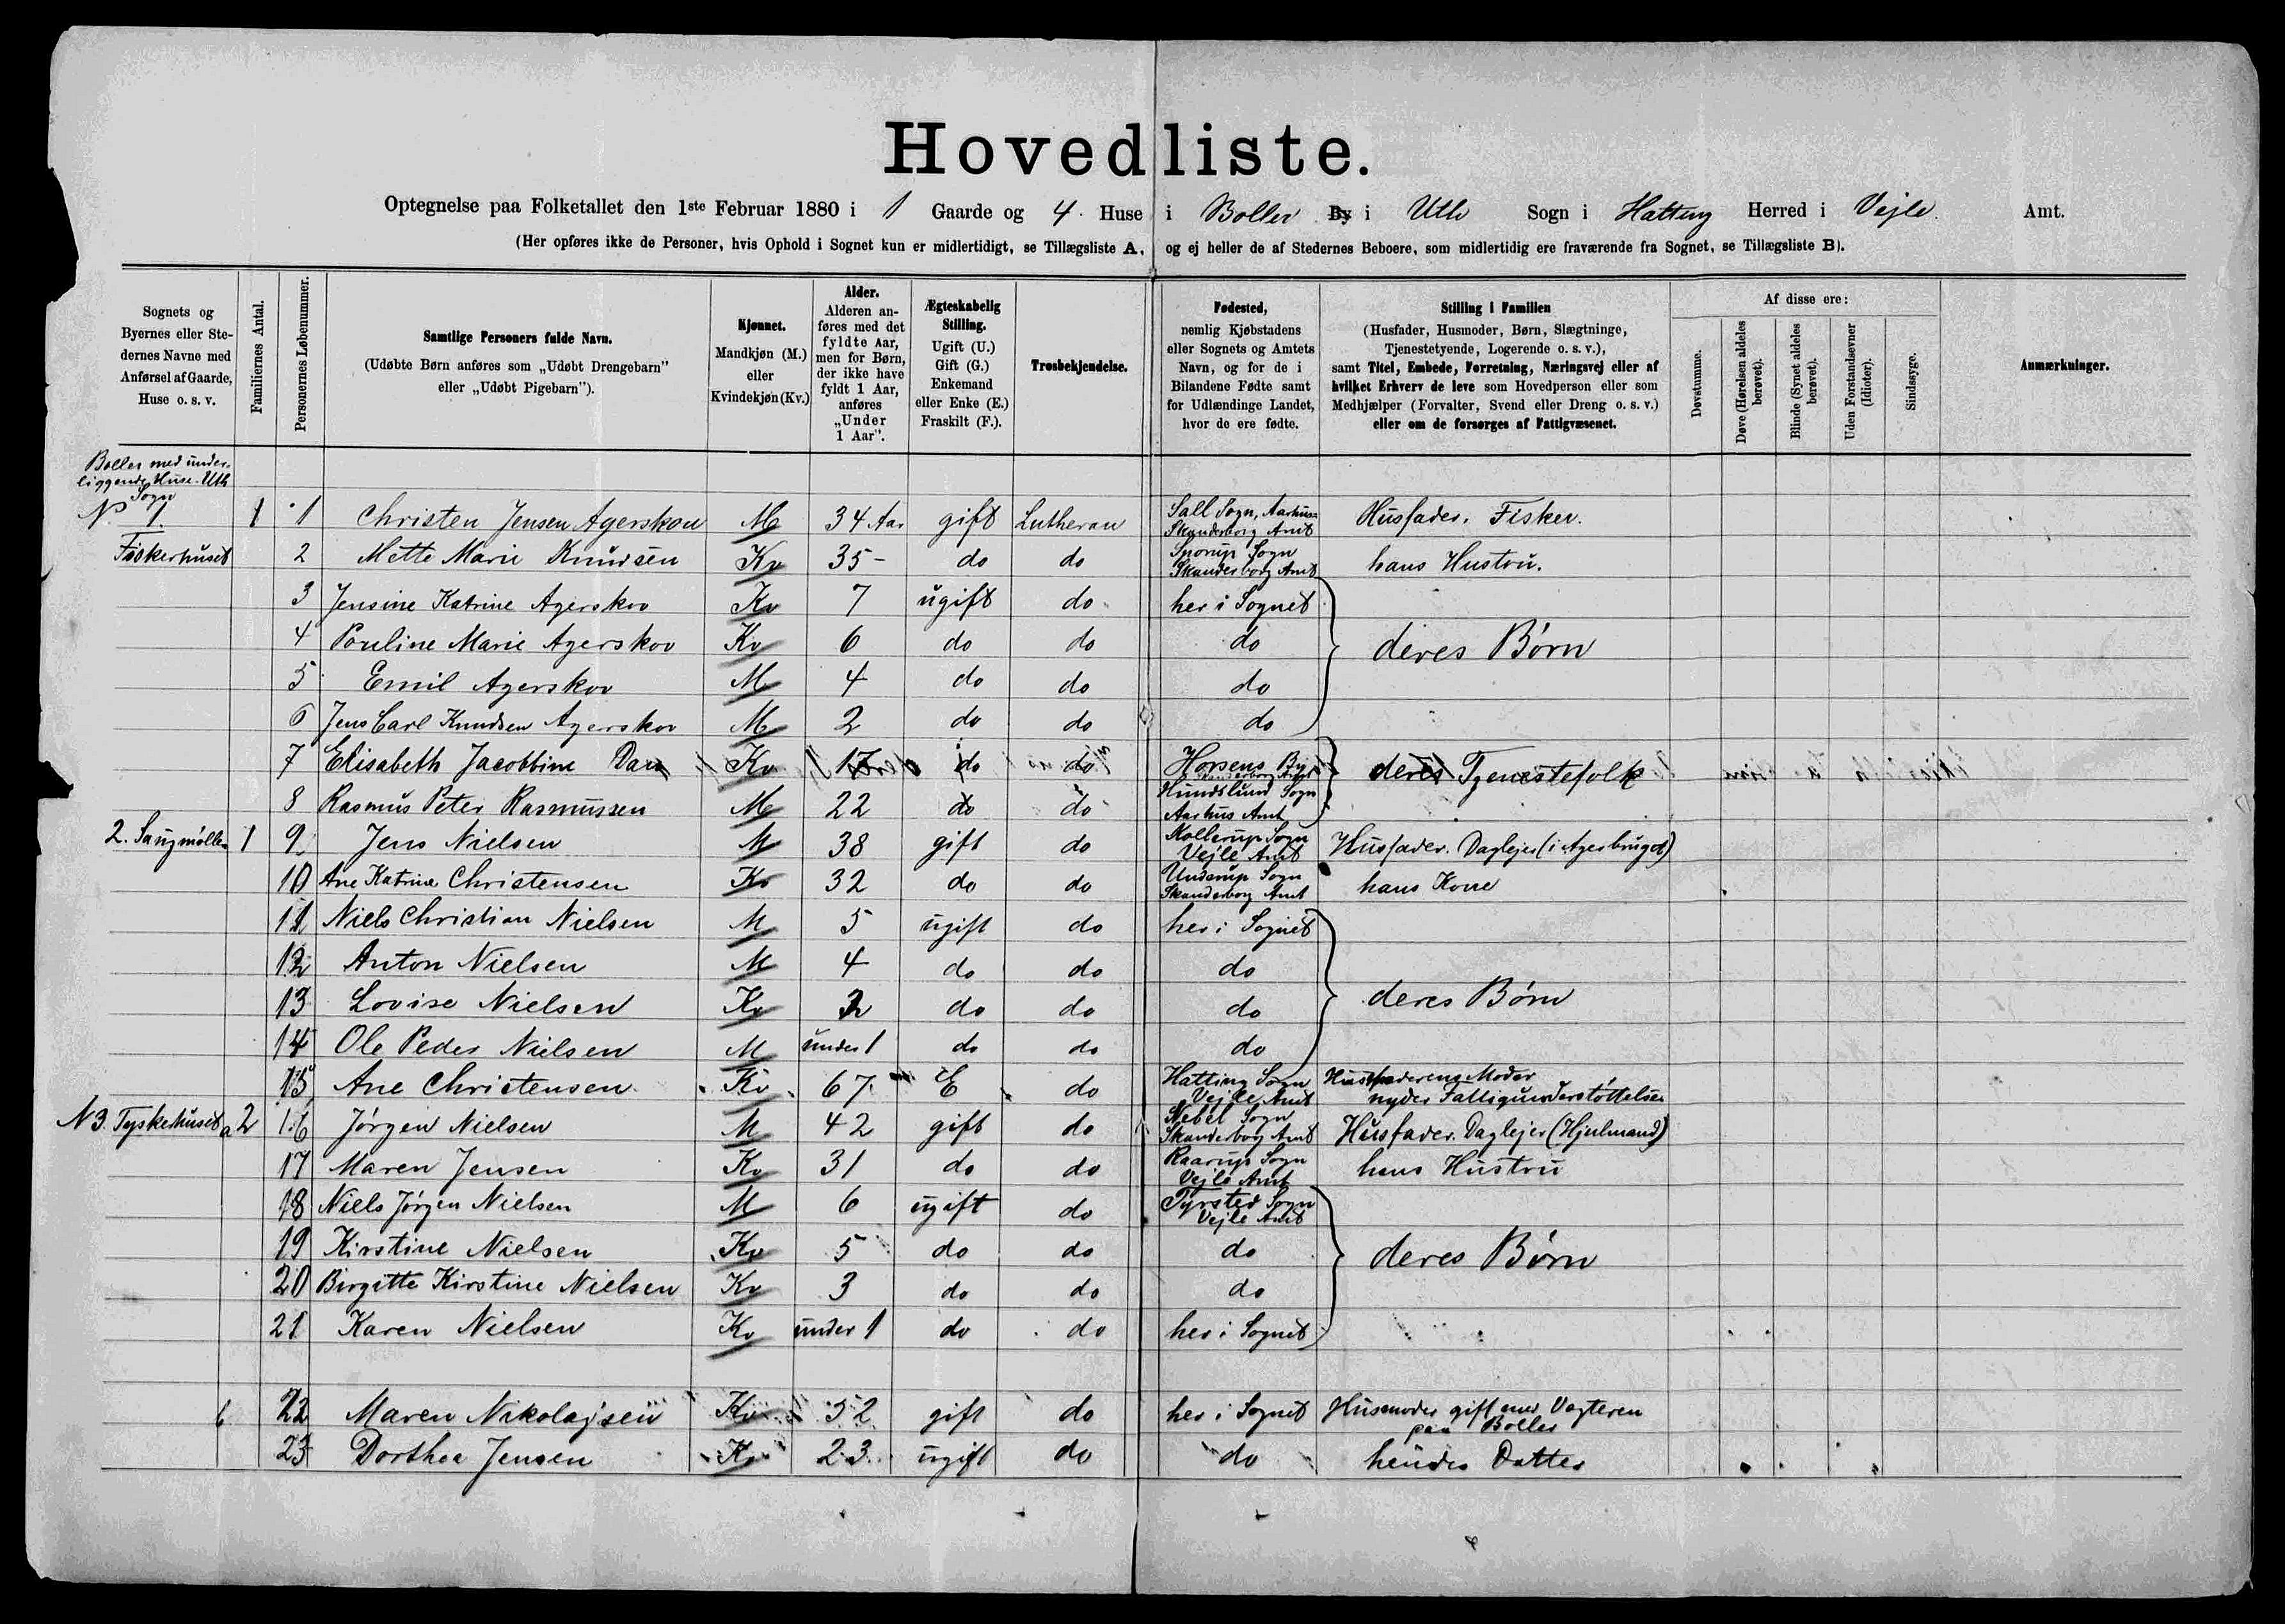 Hovedliste.
Optegnelse paa Folketallet den 1ste Februar 1880 i 1 Gaarde og 4. Huse i Boller By i Uth Sogn i Hatting Herred i Vejle. Amt.
(Her opføres ikke de Personer, hvis Ophold i Sognet kun er midlertidigt, se Tillægsliste A, og ej heller de af Stedernes Beboere, som midlertidig ere fraværende fra Sognet, se Tillægsliste B).
Sognets og Byernes eller Stedernes Navne med Anførsel af Gaarde, Huse o. s. v.
Familiernes Antal.
Personernes Løbenummer.
Samtlige Personers fulde Navn.
(Udøbte Børn anføres som „Udøbt Drengebarn" eller „Udøbt Pigebarn").
Kjønnet.
Mandkjøn (M.) eller Kvindekjøn (Kv.)
Alder.
Alderen anføres med det fyldte Aar, men for Børn, der ikke have fyldt 1 Aar, anføres „Under 1 Aar".
Ægteskabelig Stilling.
Ugift (U.) Gift (G.) Enkemand eller Enke (E.) Fraskilt (F.).
Trosbekjendelse.
Fødested,
nemlig Kjøbstadens eller Sognets og Amtets Navn, og for de i Bilandene Fødte samt for Udlændinge Landet, hvor de ere fødte.
Stilling i Familien
(Husfader, Husmoder, Børn, Slægtninge, Tjenestetyende, Logerende o. s. v.),
samt Titel, Embede, Forretning, Næringsvej eller af hvilket Erhverv de leve som Hovedperson eller som Medhjælper (Forvalter, Svend eller Dreng o. s. v.) eller om de forsørges af Fattigvæsenet.
Af disse ere:
Døvstumme.
Døve (Hørelsen aldeles berøvet).
Blinde (Synet aldeles berøvet).
Uden Forstandsevner (Idioter).
Sindssyge.
Anmærkninger.
Boller med underliggende Huse. Uth Sogn
N 1. 1 1 Christen Jensen Agerskou M 34 Aar gift Lutheran Sall Sogn, Aarhus Skanderborg Amt Husfader. Fisker.
Fiskerhuset 2 Mette Marie Knudsen Kv 35- do do Snorup Sogn Skanderborg Amt hans Hustru.
3 Jensine Katrine Agerskov Kv 7 ugift do her i Sognet
4 Pouline Marie Agerskov Kv 6 do do do deres Børn
5 Emil Agerskov M 4 do do do
6 Jens Carl Knudsen Agerskov M 2 do do do
7 Elisabeth Jacobbine Kv 17 do do Horsens By Skanderborg Amt deres Tjenestefolk
8 Rasmus Peter Rasmussen M 22 do do Hundslund Sogn Aarhus Amt
2. Saugmøllen 1 9 Jens Nielsen M 38 gift do Kollerup Sogn Vejle Amt Husfader. Daglejer (i Agerbruget)
10 Ane Katrine Christensen Kv 32 do do Underup Sogn Skanderborg Amt hans Kone
11 Niels Christian Nielsen M 5 ugift do her i Sognet
12 Anton Nielsen M 4 do do do
13 Lovise Nielsen Kv 2 do do do deres Børn
14 Ole Peder Nielsen M under 1 do do do
15 Ane Christensen Kv 67 E do Hatting Sogn Vejle Amt Husfaderens Moder nyder Fattigunderstøttelse
N 3. Tyskehuset a 2 16 Jørgen Nielsen M 42 gift do Nebel Sogn Skanderborg Amt Husfader. Daglejer (Hjulmand)
17 Maren Jensen Kv 31 do do Raarup Sogn Vejle Amt hans Hustru
18 Niels Jørgen Nielsen M 6 ugift do Tyrsted Sogn Vejle Amt
19 Kirstine Nielsen Kv 5 do do do deres Børn
20 Birgitte Kirstine Nielsen Kv 3 do do do
21 Karen Nielsen Kv under 1 do do her i Sognet
b 22 Maren Nikolajsen Kv 52 gift do her i Sognet Husmoder gift med Vogteren paa Boller
23 Dorthea Jensen Kv 23 ugift do do hendes Datter